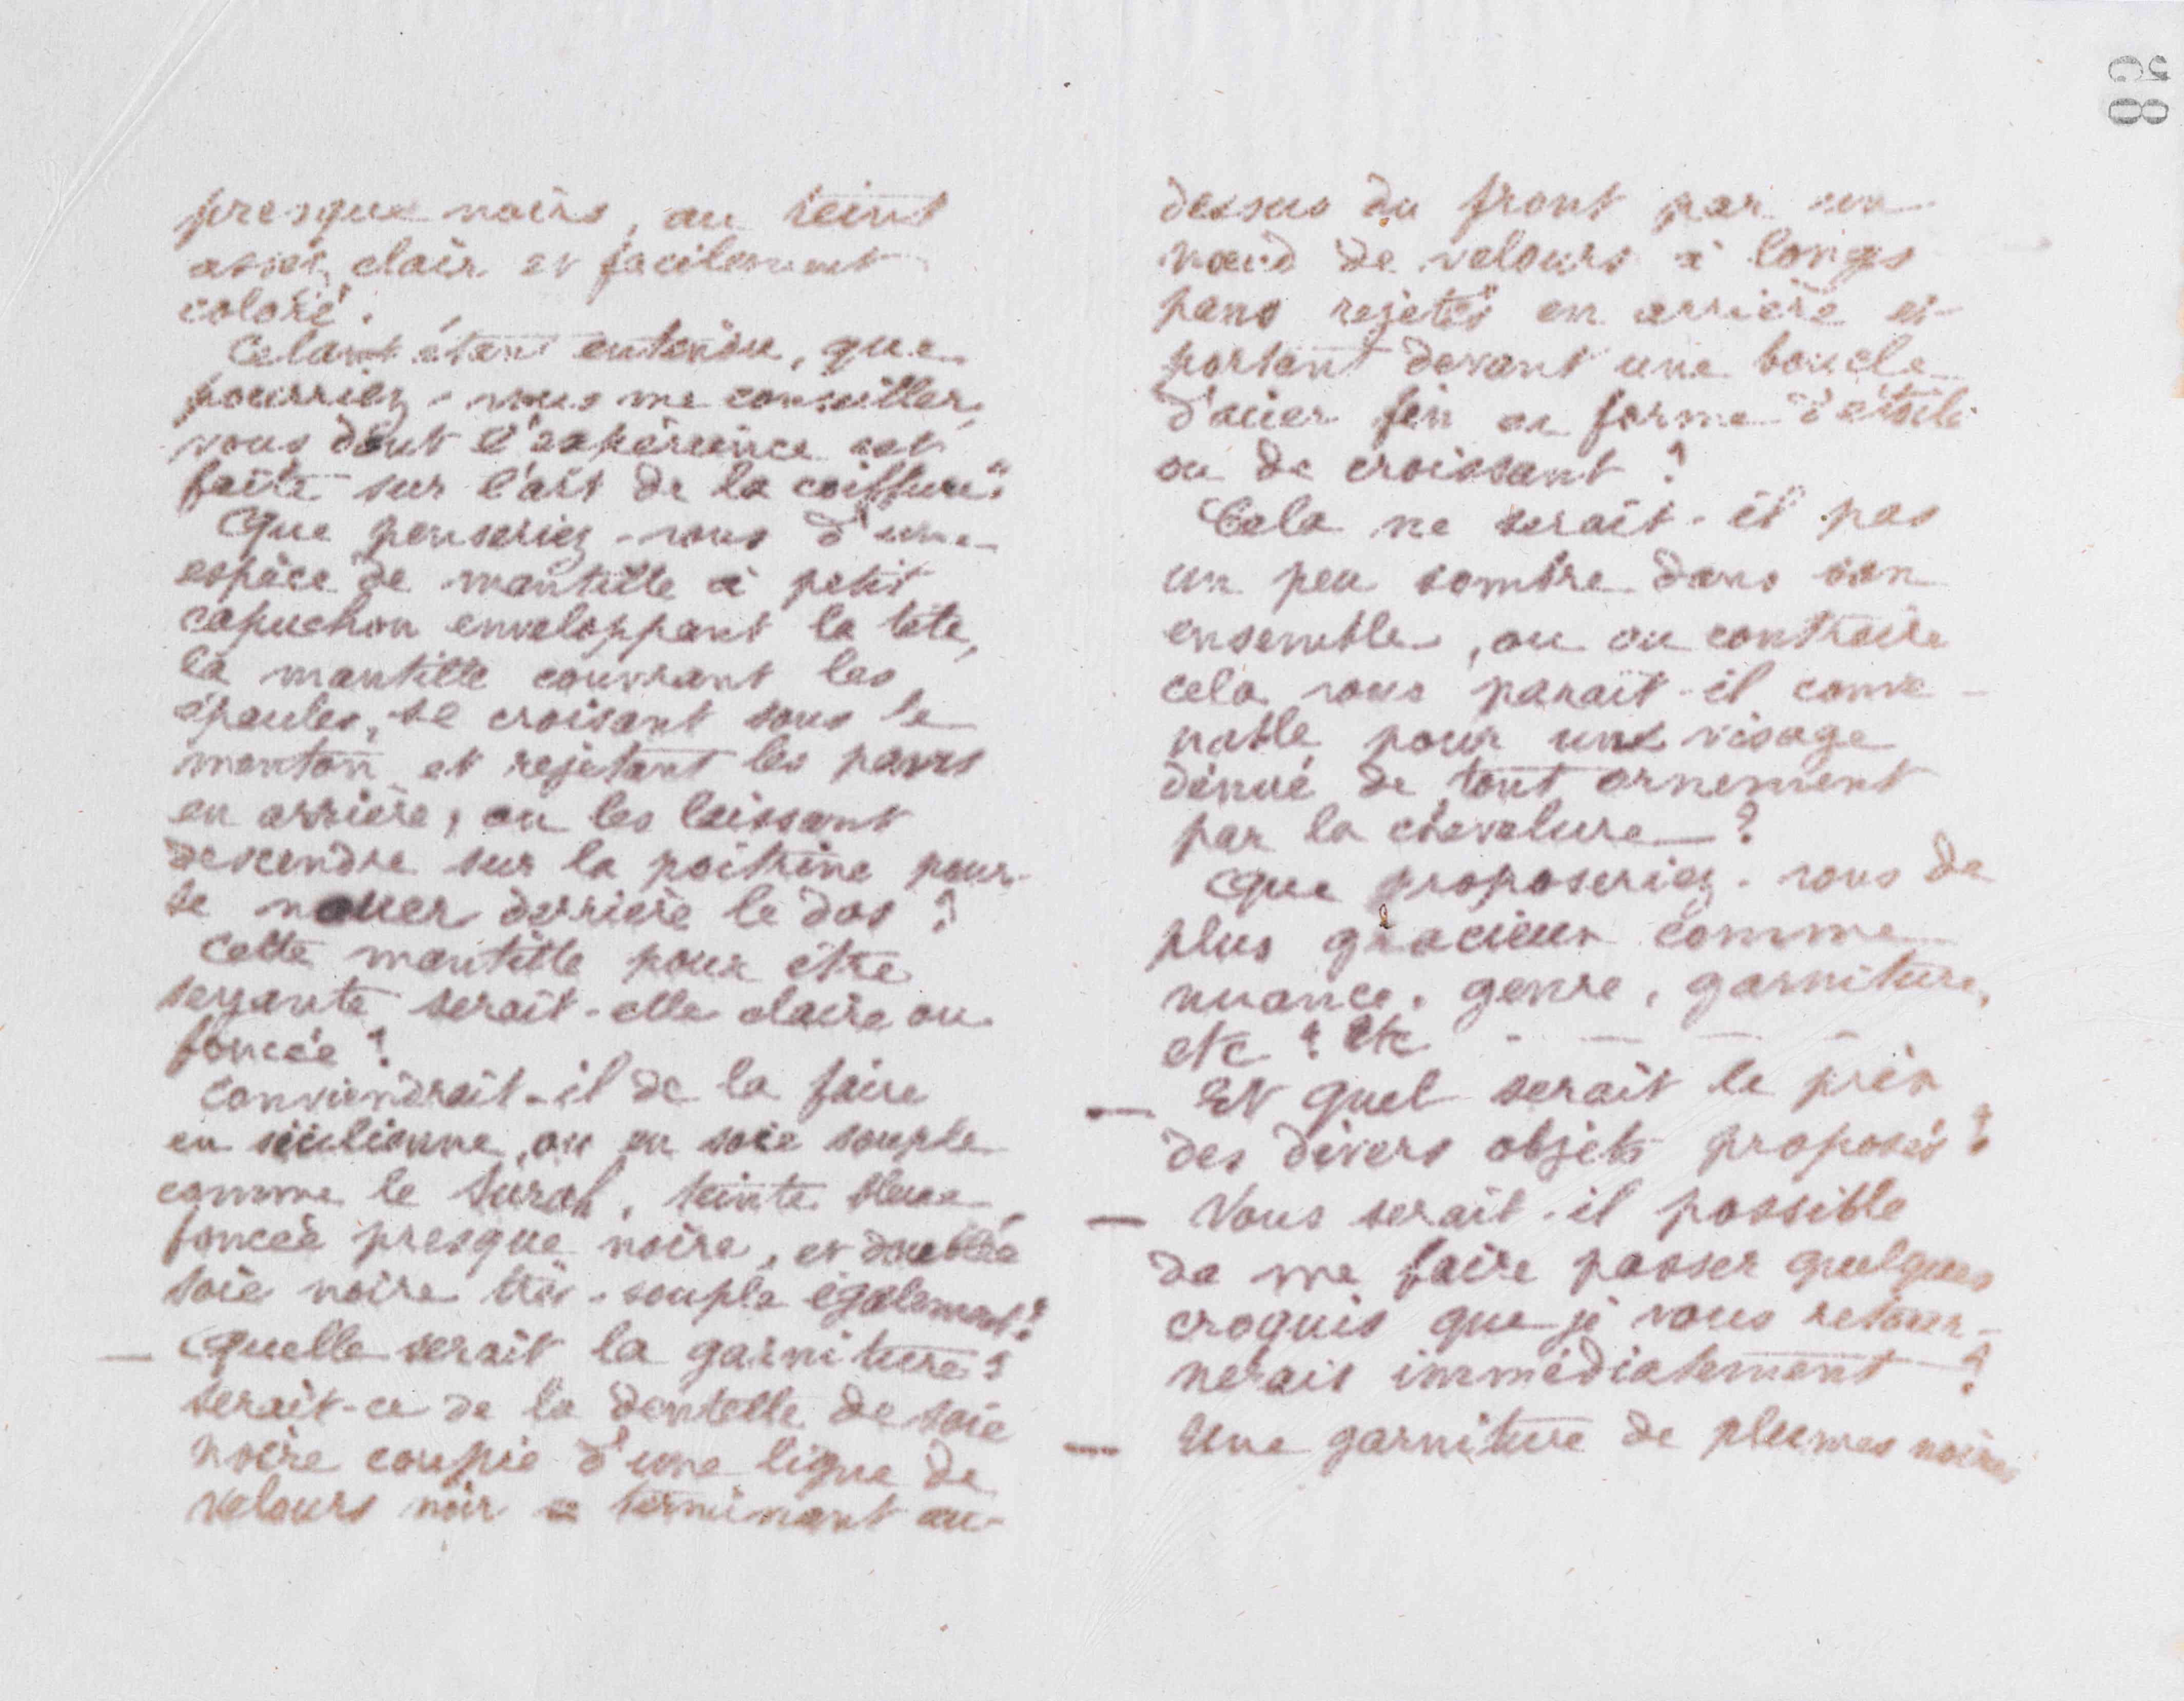 presque noirs, au teint
assez clair et facilement
coloré.
Cela étant entendu, que
pourriez-vous me conseiller,
vous dont l'expérience est
faite sur l'art de la coiffure?
Que penseriez-vous d'une
espèce de mantille à petit
capuchon enveloppant la tête,
la mantille couvrant les
épaules, se croisant sous le
menton et rejetant les pans
en arrière, ou les laissant
descendre sur la poitrine pour
se nouer derrière le dos ?
Cette mantille pour être
seyante serait-elle claire ou
foncée ?
Conviendrait-il de la faire
en sicilienne, ou en soie souple
comme le surah, teinte bleue
foncée presque noire, et doublée
soie noire très-souple également?
— Quelle serait la garniture ?
serait-ce de la dentelle de soie
noire coupée d'une ligne de
velours noir se terminant au-
dessus du front par un
nœud de velours à longs
pans rejetés en arrière et
portant devant une boucle
d'acier fin en forme d'étoile
ou de croissant ?
Cela ne serait-il pas
un peu sombre dans son
ensemble, ou au contraire
cela vous paraît-il conve-
nable pour un visage
dénué de tout ornement
par la chevelure — ?
Que proposeriez-vous de
plus gracieux comme
nuance, genre, garniture,
etc ? etc - — — —
— Et quel serait le prix
des divers objets proposés ?
— Vous serait-il possible
de me faire passer quelques
croquis que je vous retour-
nerais immédiatement — ?
— Une garniture de plumes noires
28